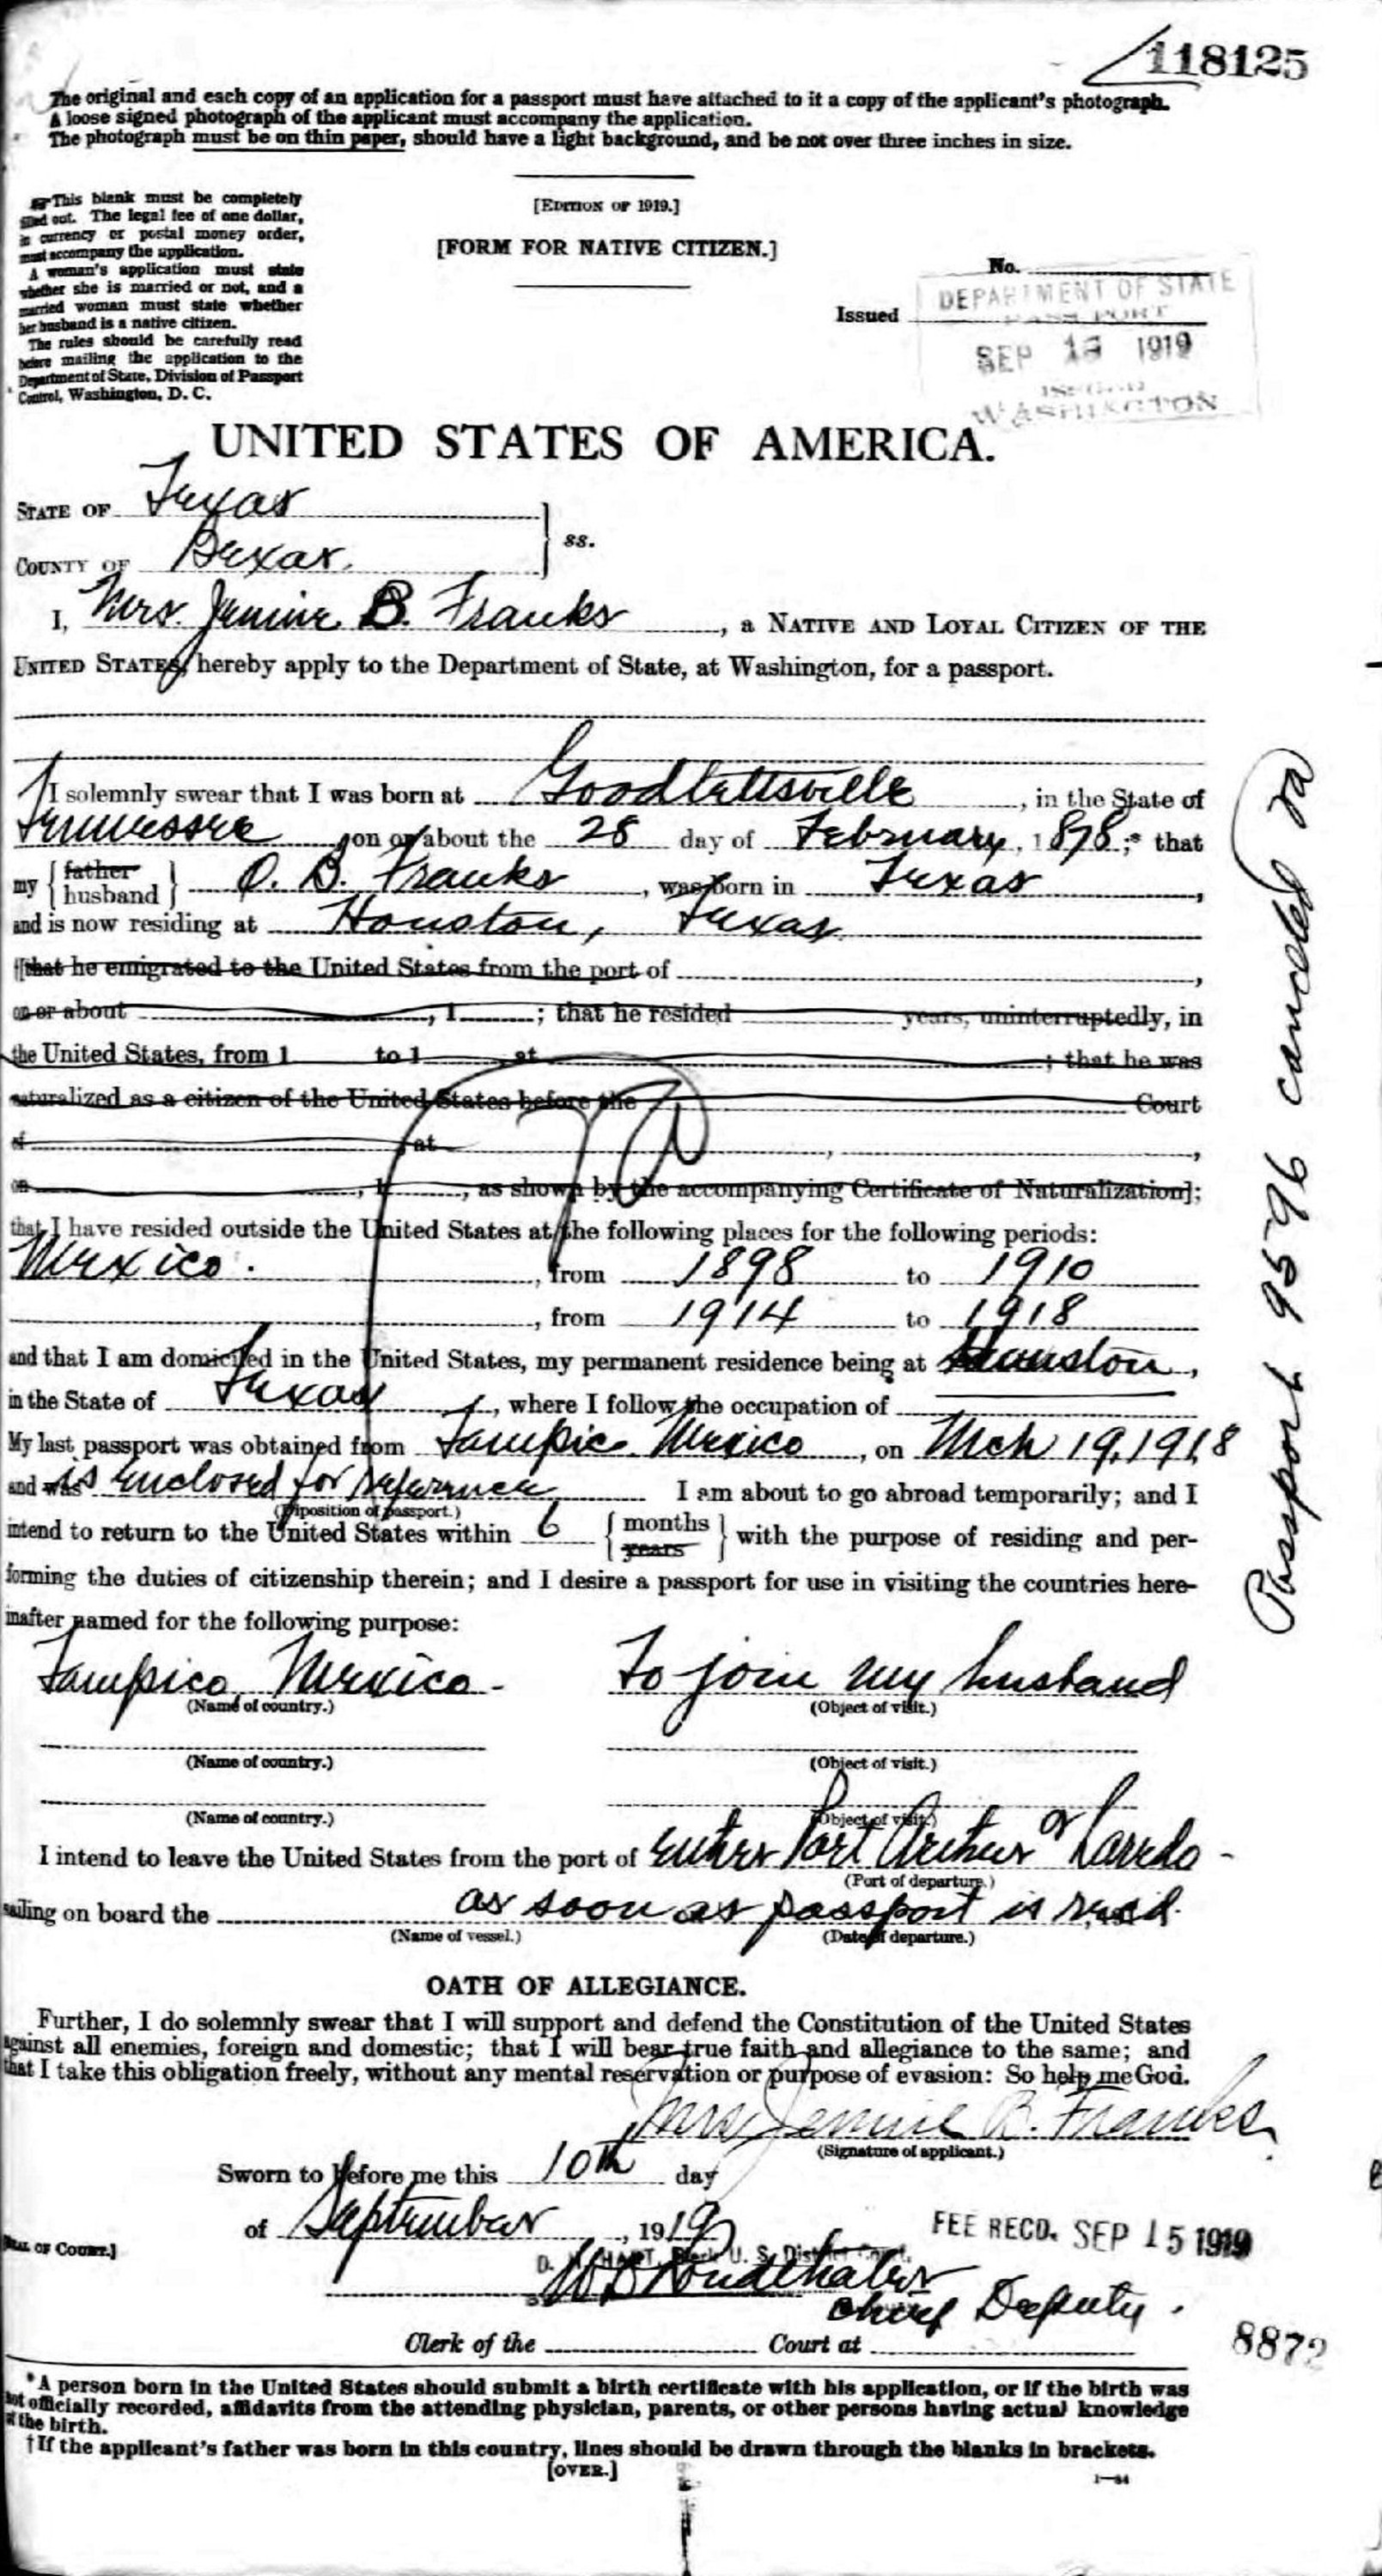 118125
The original and each copy of an application for a passport must have attached to it a copy of the applicant's photograph.
A loose signed photograph of the applicant must accompany the application.
The photograph must be on thin paper, should have a light background, and be not over three inches in size.
This blank must be completely
filled out. The legal fee of one dollar,
in currency or postal money order,
must accompany the application.
A woman's application must state
whether she is married or not, and a
married woman must state whether
her husband is a native citizen.
The rules should be carefully read
before mailing the application to the
Department of State, Division of Passport
Control, Washington, D. C.
[EDITION OF 1919.]
[FORM FOR NATIVE CITIZEN.]
No.
Issued
DEPARTMENT OF STATE
PASSPORT
SEP 13 1919
ISSUED
WASHINGTON
UNITED STATES OF AMERICA.
STATE OF Texas
COUNTY OF Bexar.
ss.
I, Mrs. Jennie B. Franks, a NATIVE AND LOYAL CITIZEN OF THE
UNITED STATES, hereby apply to the Department of State, at Washington, for a passport.
I solemnly swear that I was born at Goodlettsville, in the State of
Tennessee, on or about the 28 day of February, 1878;* that
my {father husband} O. B. Franks, was born in Texas,
and is now residing at Houston, Texas.
†[that he emigrated to the United States from the port of ,
on or about , 1 ; that he resided years, uninterruptedly, in
the United States, from 1 to 1 , at ; that he was
naturalized as a citizen of the United States before the Court
of , at , ,
on , 1 , as shown by the accompanying Certificate of Naturalization];
that I have resided outside the United States at the following places for the following periods:
Mexico. , from 1898 to 1910
, from 1914 to 1918
and that I am domiciled in the United States, my permanent residence being at Houston,
in the State of Texas, where I follow the occupation of
My last passport was obtained from Tampic. Mexico, on Mch 19, 1918
and was is enclosed for reference I am about to go abroad temporarily; and I
(Disposition of passport.)
intend to return to the United States within 6 {months years} with the purpose of residing and per-
forming the duties of citizenship therein; and I desire a passport for use in visiting the countries here-
inafter named for the following purpose:
Tampico, Mexico - To join my husband
(Name of country.) (Object of visit.)
(Name of country.) (Object of visit.)
(Name of country.) (Object of visit.)
I intend to leave the United States from the port of either Port Arthur or Laredo -
(Port of departure.)
sailing on board the as soon as passport is recd.
(Name of vessel.) (Date of departure.)
OATH OF ALLEGIANCE.
Further, I do solemnly swear that I will support and defend the Constitution of the United States
against all enemies, foreign and domestic; that I will bear true faith and allegiance to the same; and
that I take this obligation freely, without any mental reservation or purpose of evasion: So help me God.
Mrs Jennie B. Franks.
(Signature of applicant.)
Sworn to before me this 10th day
of September, 1919
[SEAL OF COURT.]
FEE RECD. SEP 15 1919
HART, Clerk U. S. District Court,
Chief Deputy.
Clerk of the Court at
8872
*A person born in the United States should submit a birth certificate with his application, or if the birth was
not officially recorded, affidavits from the attending physician, parents, or other persons having actual knowledge
of the birth.
†If the applicant's father was born in this country, lines should be drawn through the blanks in brackets.
[OVER.]
Passport 9596 canceled